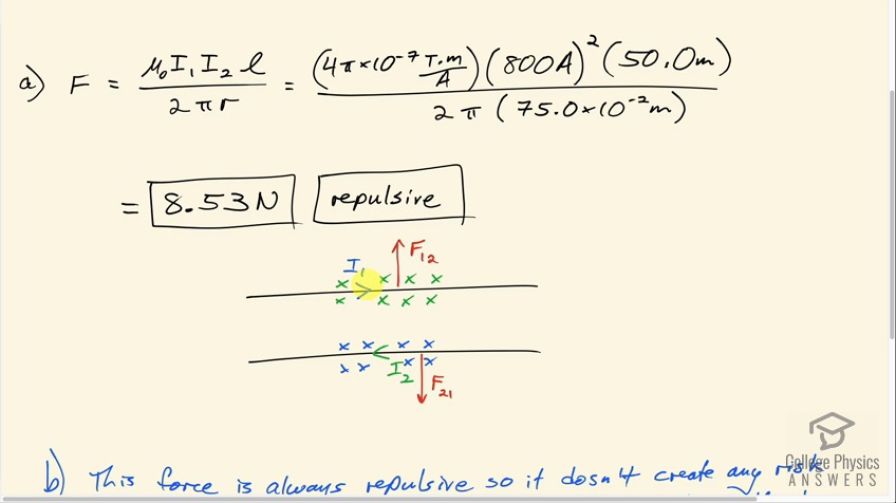 a) F = μ₀I₁I₂ℓ / 2πr = (4π×10⁻⁷ T·m/A)(800A)²(50.0m) / 2π(75.0×10⁻²m)
= 8.53N repulsive
F₁₂
I₁
x x x x
x x x x
x x x x
x x x x
I₂
F₂₁
b) This force is always repulsive so it doesn't create any risk
College Physics
ANSWERS